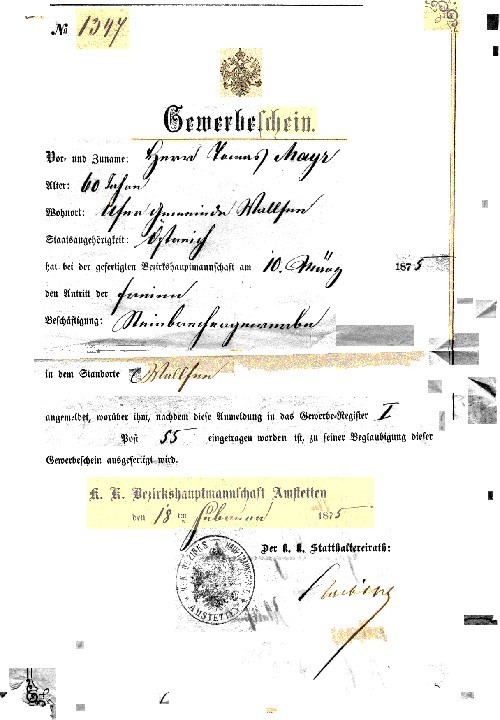 № 1347
Gewerbeschein.
Vor- und Zuname: Herr Tomas Mayr
Alter: 60 Jahre
Wohnort: Ufer Gemeinde Wallsee
Staatsangehörigkeit: Östreich
hat bei der gefertigten Bezirkshauptmannschaft am 10. März 1875
den Antritt der freien
Beschäftigung: Steinbrechergewerbe
in dem Standorte Wallsee
angemeldet, worüber ihm, nachdem diese Anmeldung in das Gewerbe-Register I
Post 55 eingetragen worden ist, zu seiner Beglaubigung dieser
Gewerbeschein ausgefertigt wird.
K. K. Bezirkshauptmannschaft Amstetten
den 18 ten Februar 1875
Der k. k. Statthaltereirath:
AMSTETTEN